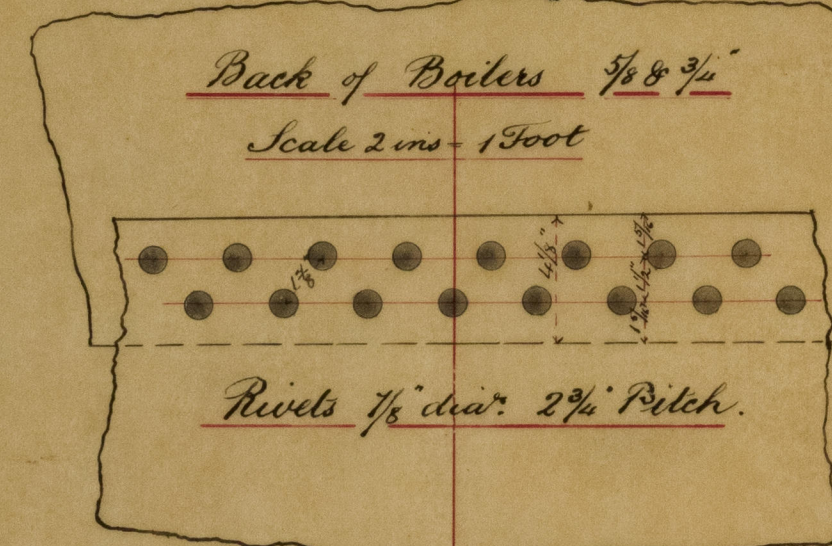 Back of Boilers 5/8 & 3/4"
Scale 2 ins = 1 Foot
4 1/8"
1 7/8
Rivets 7/8" diar. 2 3/4" Pitch.